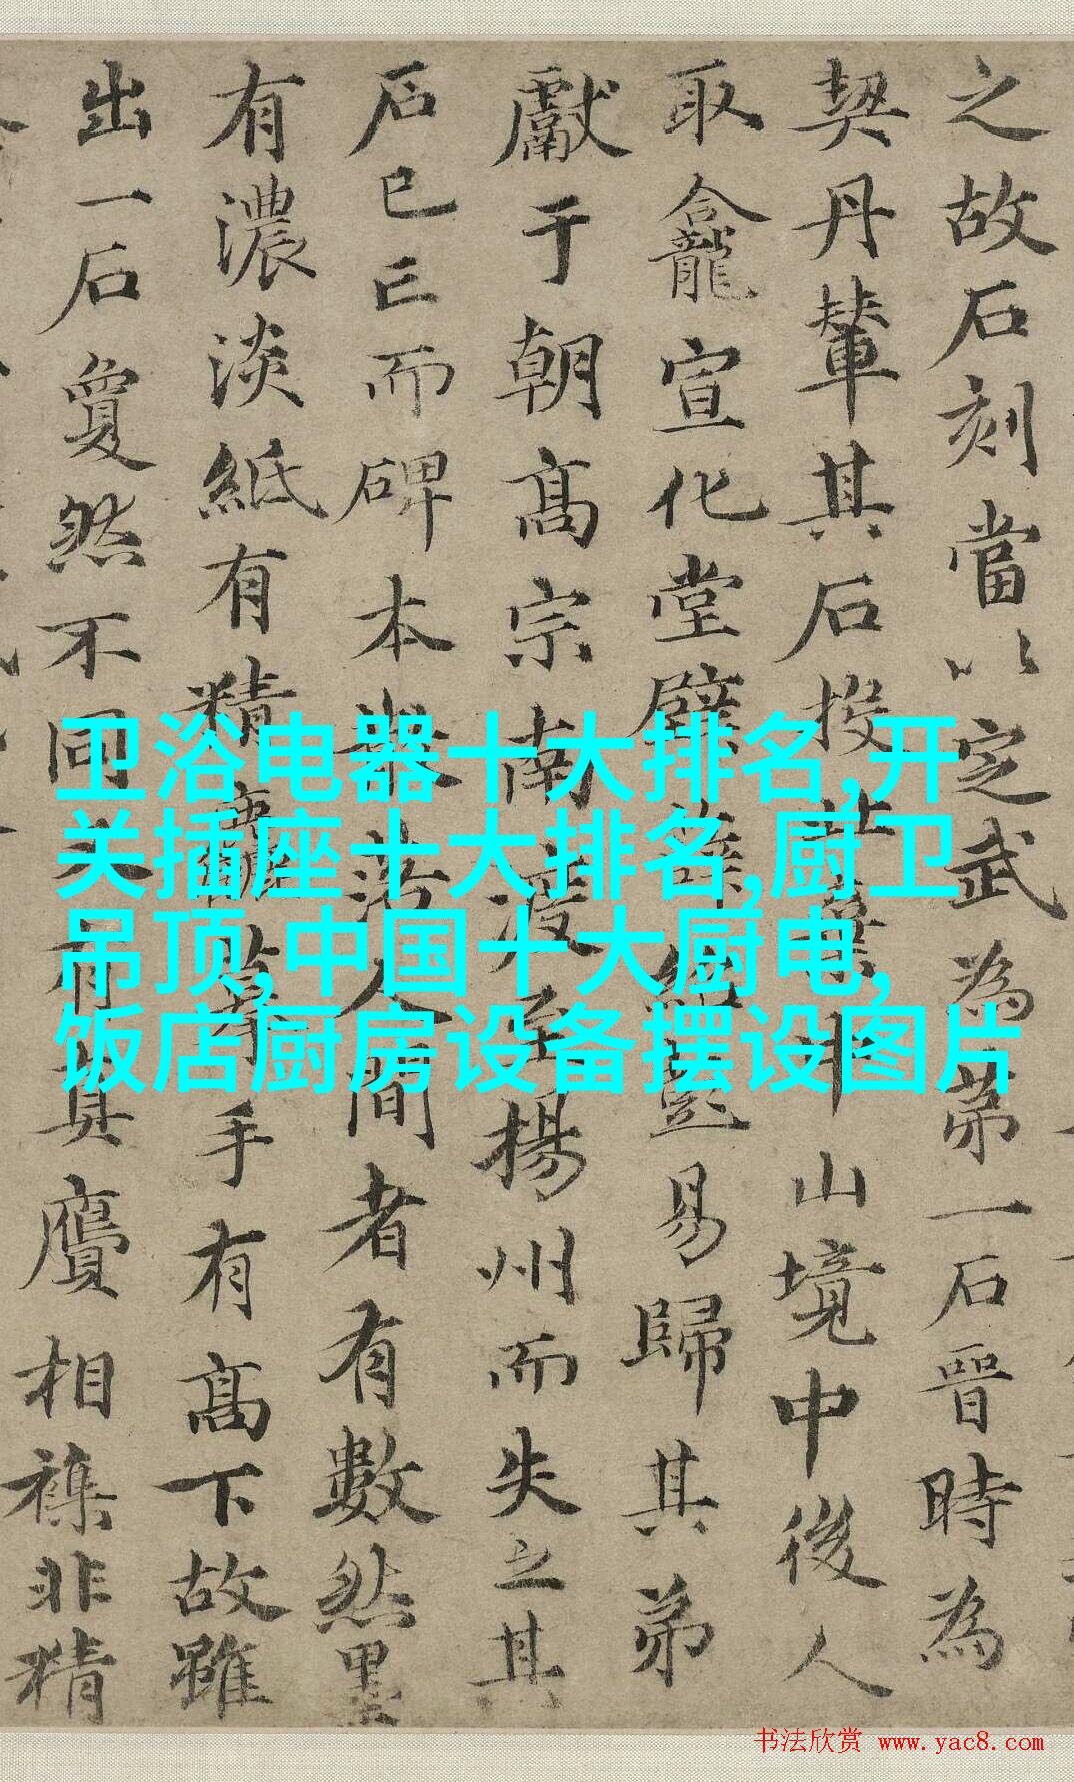 之故石刻當以定武為第一石晉時為
契丹輦其石投棄中山境中後人
取龕宣化堂壁薛紹彭易歸其弟
獻于朝高宗南渡至揚州而失之其
石已亡而碑本散落人間者有數然墨
有濃淡紙有精麤摹手有高下故雖
出一石夐然不同又有真贗相襍非精
卫浴电器十大排名,开
关插座十大排名,厨卫
吊顶,中国十大厨电,
饭店厨房设备摆设图片
书法欣赏 www.yac8.com